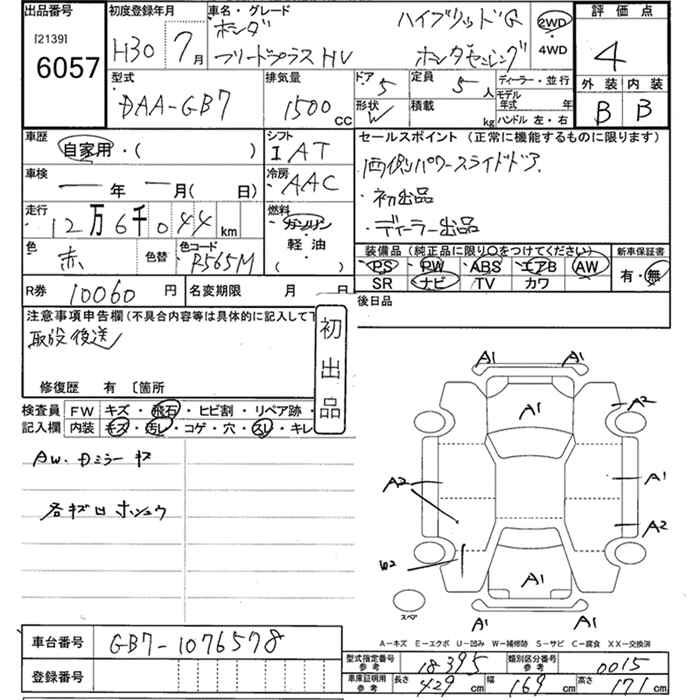 出品番号
[2139]
6057
初度登録年月
H30 7月
車名・グレード
ホンダ ハイブリッドG
フリードプラス HV ホンダセンシング
2WD
4WD
評価点
4
外装 内装
B B
型式
DAA-GB7
排気量
1500 CC
ドア 5
定員 5 人
形状 W
積載 kg
ディーラー・並行
モデル年式 年
ハンドル 左・右
車歴
自家用・( )
シフト
I AT
セールスポイント (正常に機能するものに限ります)
両側パワースライドドア.
・初出品
・ディーラー出品
車検
ー年 ー月( 日)
冷房
AAC
走行
12万6千044 km
燃料
ガソリン
軽油
( )
色
赤
色替
色コード
R565M
装備品 (純正品に限り○をつけてください)
PS PW ABS エアB AW
SR ナビ TV カワ
新車保証書
有・無
R券 10060 円
名変期限 月 日
後日品
注意事項申告欄(不具合内容等は具体的に記入して下
取説後送
初出品
修復歴 有 〔箇所
検査員記入欄
FW キズ・飛石・ヒビ割・リペア跡・
内装 キズ・汚レ・コゲ・穴・スレ・キレ
AW.Dミラー キズ
各キズロホシュウ
A1 A1
A1
A2
A1
A2
A2
W2
A1
A1 A1
スペア
A−キズ E−エクボ U−凹み W−補修跡 S−サビ C−腐食 XX−交換済
車台番号 GB7-1076578
登録番号
型式指定番号 参考 18395
類別区分番号 参考 0015
車庫証明用 参考 長さ 429 cm 幅 169 cm 高さ 171 cm